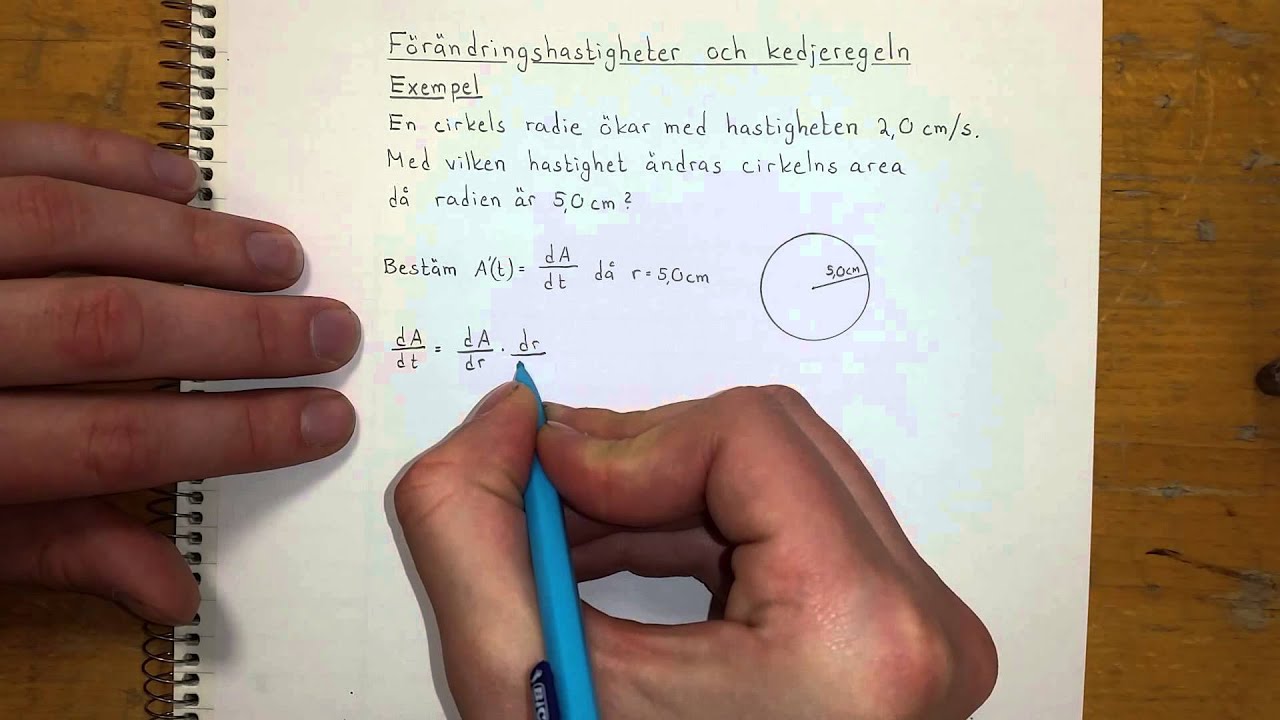 Förändringshastigheter och kedjeregeln
Exempel
En cirkels radie ökar med hastigheten 2,0 cm/s.
Med vilken hastighet ändras cirkelns area
då radien är 5,0 cm?
Bestäm A'(t) = dA/dt då r = 5,0 cm
5,0 cm
dA/dt = dA/dr · dr/
BIC